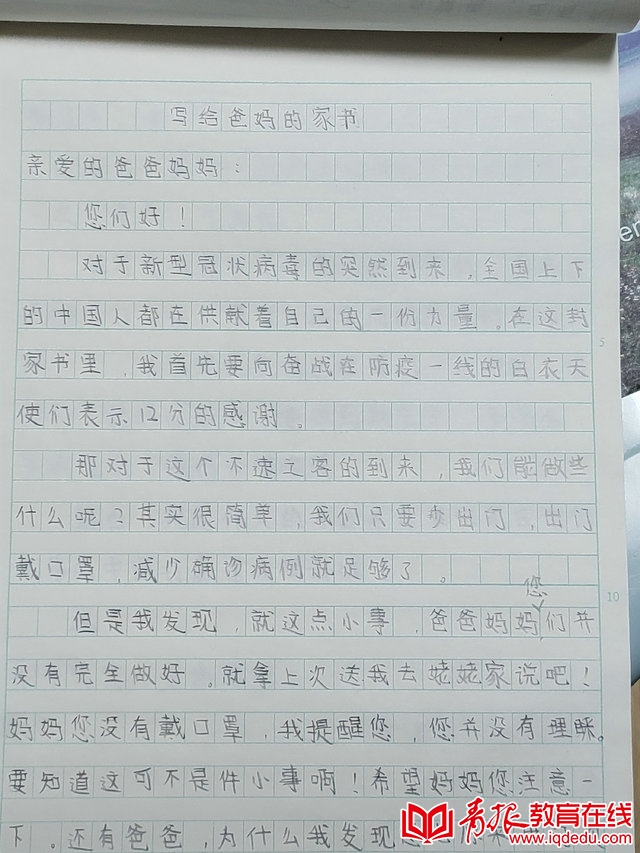 写给爸妈的家书
亲爱的爸爸妈妈：
您们好！
对于新型冠状病毒的突然到来，全国上下
的中国人都在供就着自己的一份力量。在这封
家书里，我首先要向奋战在防疫一线的白衣天
使们表示12分的感谢。
那对于这个不速之客的到来，我们能做些
什么呢？其实很简单，我们只要少出门，出门
戴口罩，减少确诊病例就足够了。
但是我发现，就这点小事，爸爸妈妈您们并
没有完全做好。就拿上次送我去姥姥家说吧！
妈妈您没有戴口罩，我提醒您，您并没有理睬。
要知道这可不是件小事啊！希望妈妈您注意一
下。还有爸爸，为什么我发现您
5
10
en
青报教育在线
www.iqdedu.com